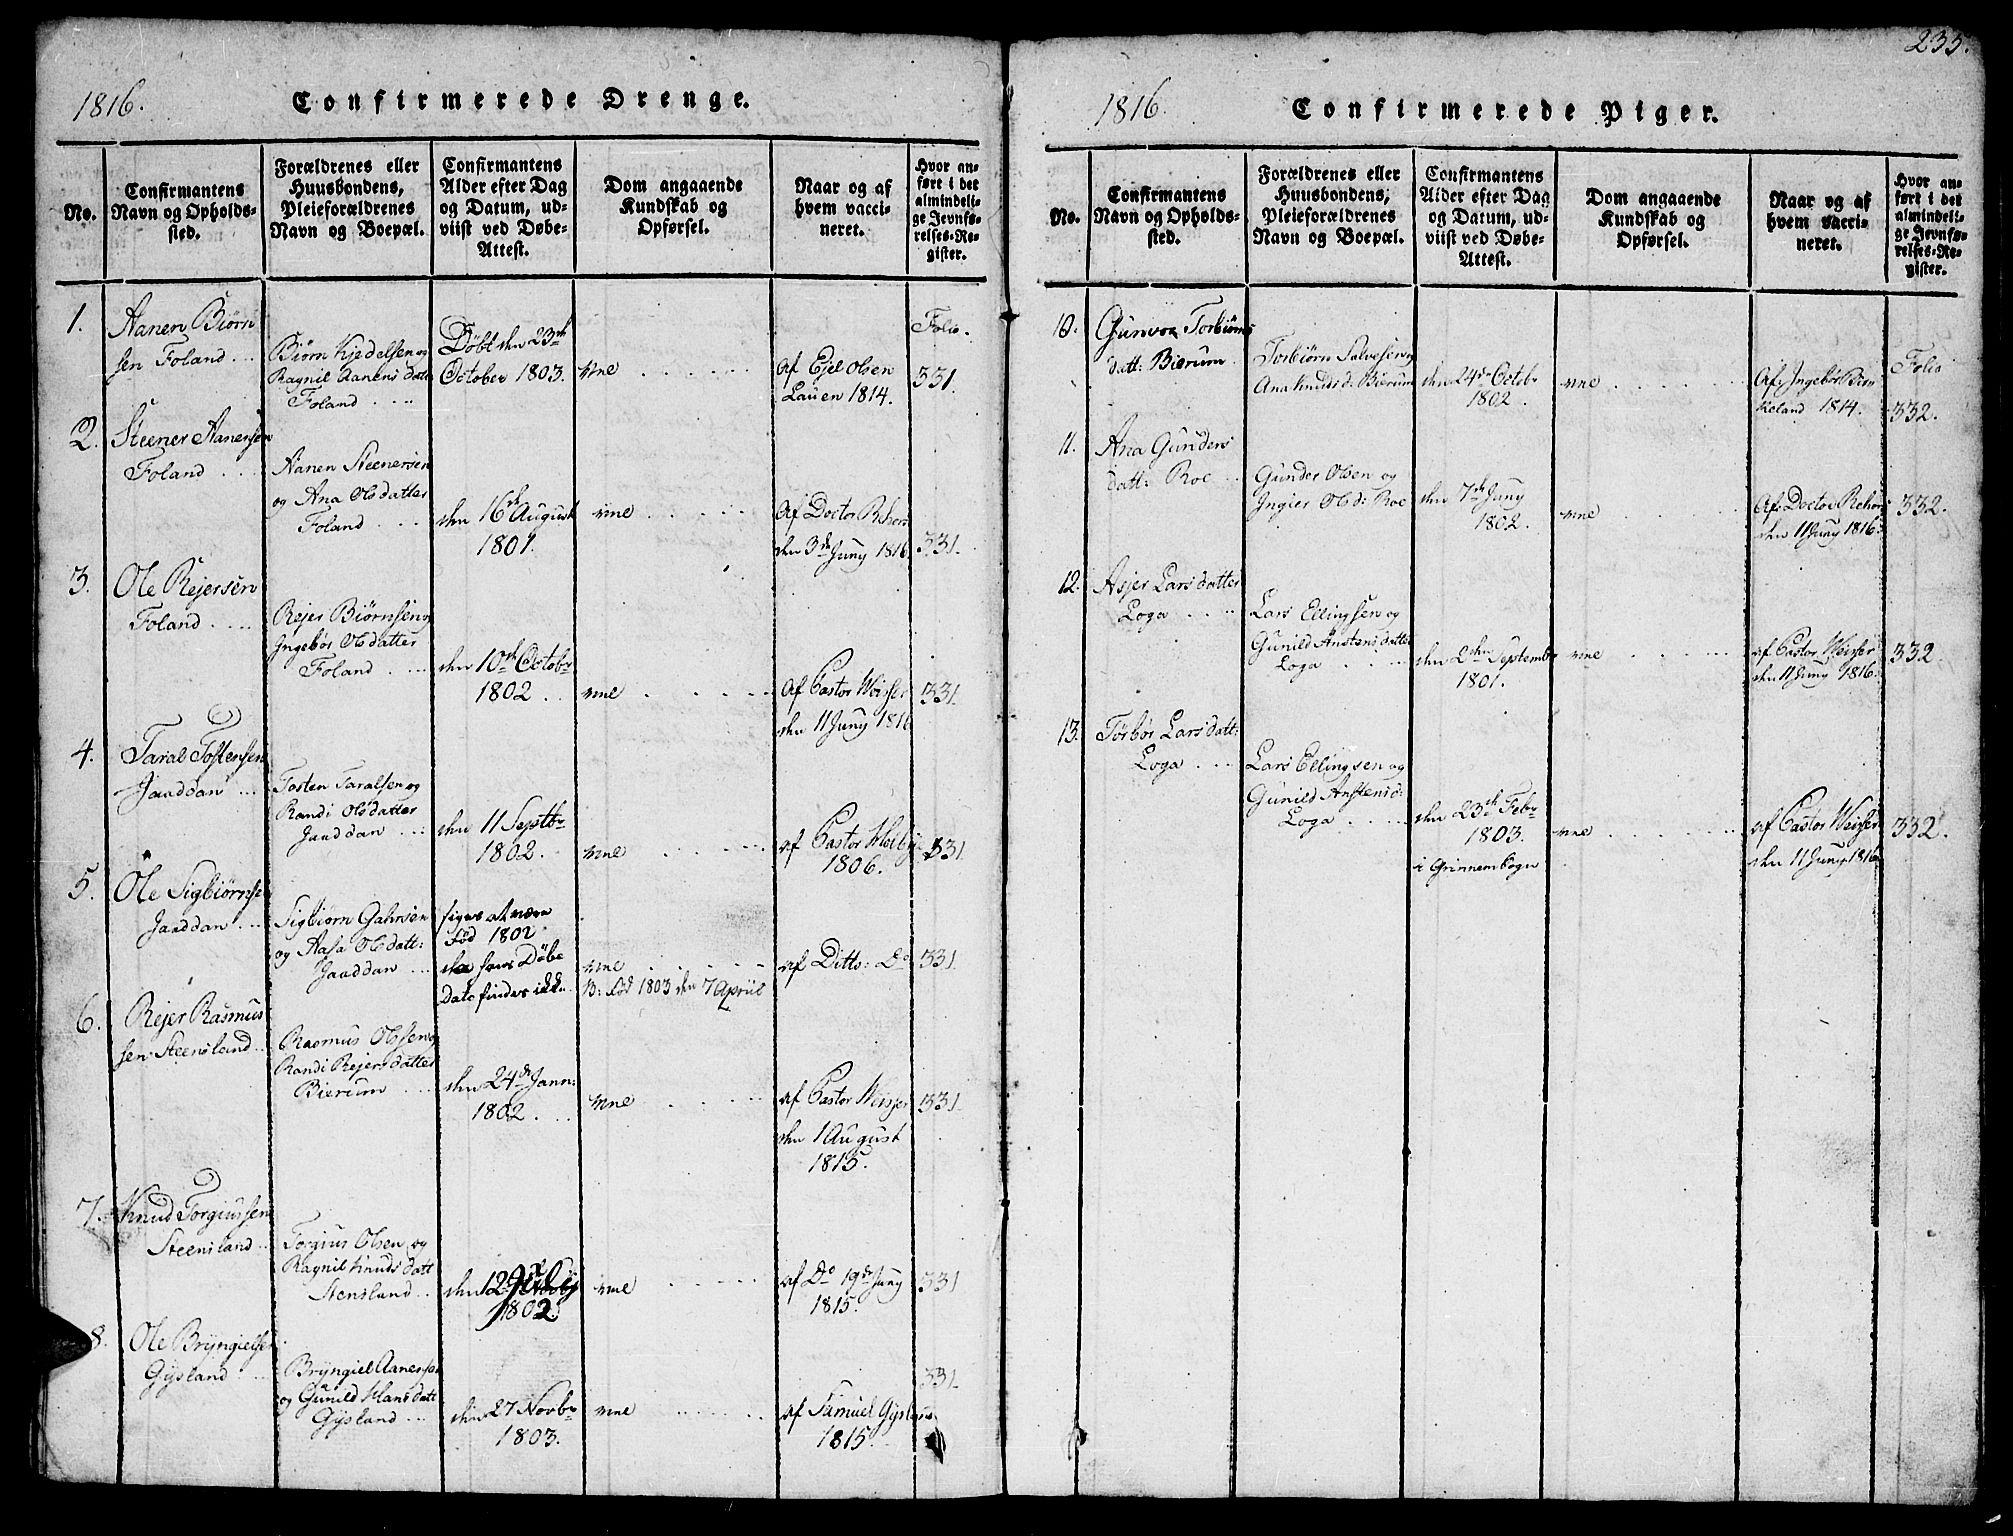 1816.
Confirmerede Drenge.
No.
Confirmantens
Navn og Opholds-
sted.
Forældrenes eller
Huusbondens,
Pleieforældrenes
Navn og Boepæl.
Confirmantens
Alder efter Dag
og Datum, ud-
viist ved Døbe-
Attest.
Dom angaaende
Kundskab og
Opførsel.
Naar og af
hvem vacci-
neret.
Hvor an-
ført i det
almindeli-
ge Jevnfø-
relses-Re-
gister.
1.
Aanen Biørn
sen Foland
Biørn Kjedelsen og
Ragnil Aanens datt
Foland
Døbt den 23de
October 1803.
af Ejel Olsen
Lauen 1814.
Folio.
331.
2.
Steener Aanensen
Foland
Aanen Steenersen
og Ana Olsdatter
Foland
den 16de August
1801.
af Doctor Rehor
den 3de Juny 1816.
331.
3.
Ole Rejersen
Foland
Rejer Biørnsen og
Ingebor Olsdatter
Foland
den 10de Octobr
1802
af Pastor Weisser
den 11 Juny 1816
331.
4.
Taral Tostensen
Jaaddan
Tosten Taralsen og
Randi Olsdatter
Jaaddan
den 11 Septbr
1802.
af Pastor
1806.
331.
5.
Ole Sigbiørnse
Jaaddan
Sigbiørn Gahnsen
og Aasa Olsdatt:
Jaaddan
siges at være
fød 1802.
den hans Døbe
Dato findes ikke
B: fød 1803 den 7 Apriil
af Ditto: Do
331.
6.
Rejer Rasmus
sen Steensland
Rasmus Olssen og
Randi Rejersdatter
Bierum
den 24de Jann:
1802.
af Pastor Weisser
den 1 August
1815.
331.
7.
Knud Torgiussen
Steensland
Torgius Olsen og
Ragnil Knuds datt
Stensland
den 12 July
1802
af Do 19de Juny
1815.
331
8.
Ole Bryngielsen
Gysland
Bryngiel Aanensen
og Gunild Hans datt
Gysland
den 27 Novbr
1803.
af Samuel Gysland
1815.
331.
235.
1816.
Confirmerede Piger.
No.
Confirmantens
Navn og Opholds-
sted.
Forældrenes eller
Huusbondens,
Pleieforældrenes
Navn og Boepæl.
Confirmantens
Alder efter Dag
og Datum, ud-
viist ved Døbe-
Attest.
Dom angaaende
Kundskab og
Opførsel.
Naar og af
hvem vacci-
neret.
Hvor an-
ført i det
almindeli-
ge Jevnfø-
relses-Re-
gister.
10.
Gunvor Torbiørns
datt: Bierum
Torbiørn Salvesen og
Ana Knuds d: Bierum
den 24de Octobr
1802.
Af Ingebor Birke
keland 1814.
Folio
332.
11.
Ana Gunders
datt: Roe
Gunder Olsen og
Ingier Ols d: Roe
den 7de Juny
1802.
Af Doctor Rehor
den 11 Juny 1816.
332.
12.
Asjer Lars datter
Loga
Lars Ellingsen og
Gunild Anstens datter
Loga
den 2den Septembr
1801.
af Pastor Weisser
den 11 Juny 1816.
332.
13.
Torbor Lars datt:
Loga
Lars Ellingsen og
Gunild Anstens d:
Loga
den 23de Febr
1803.
af Pastor Weisser
den 11 Juny 1816
332.